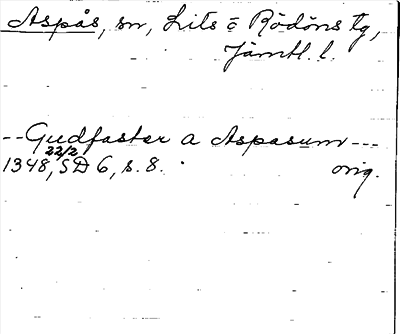 Aspås, sn, Lits o Rödöns tg,
Jämtl. l.
-- Gudfaster a Aspasum ---
22/2
1348, SD 6, s. 8. orig.